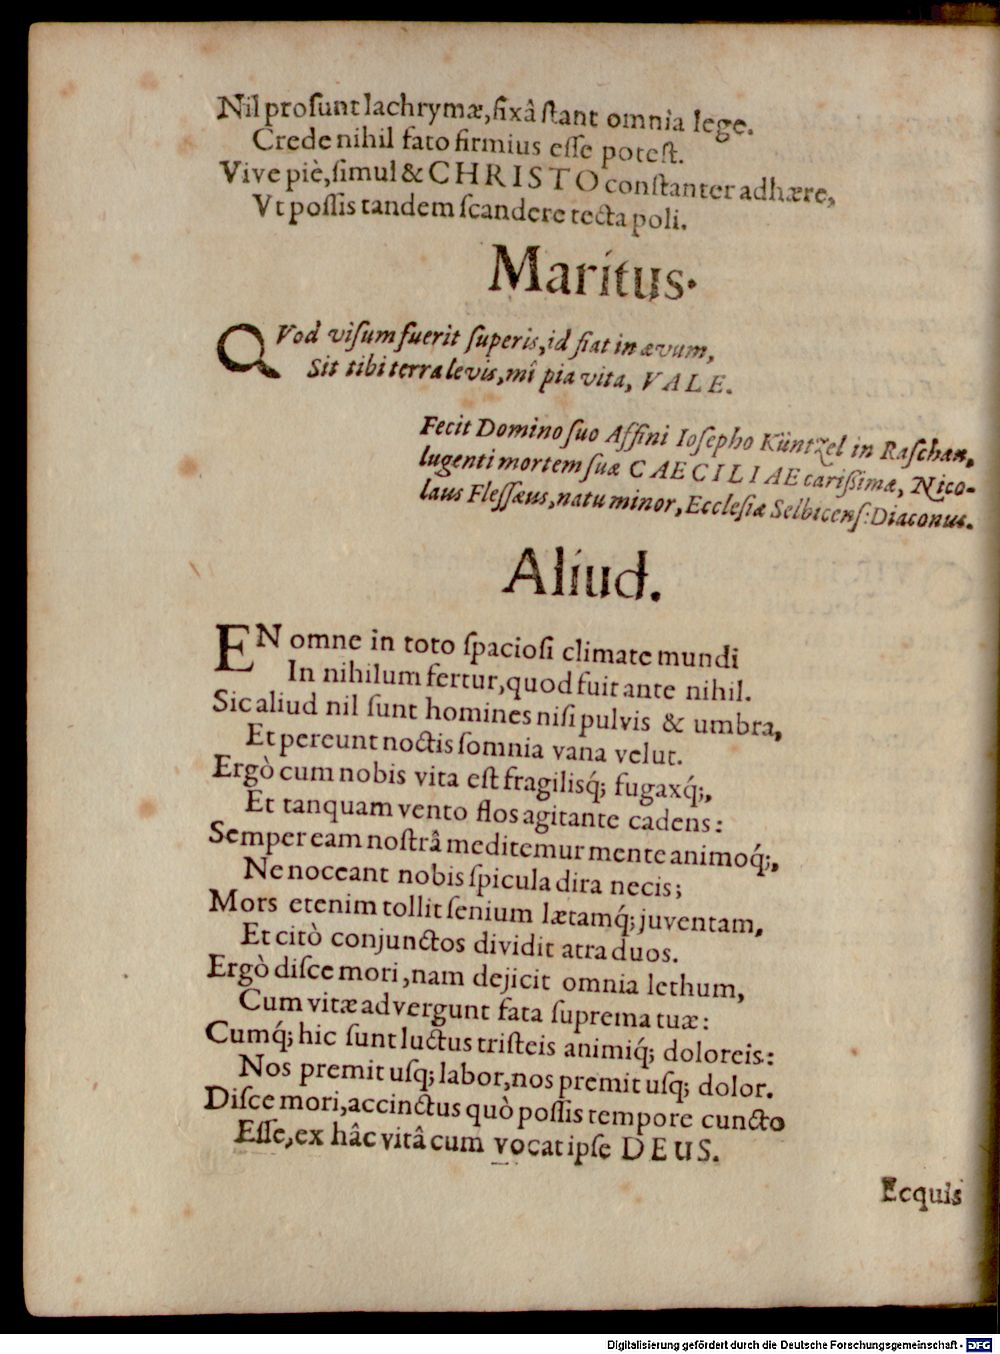 Nil proſunt lachrymæ, fixâ ſtant omnia lege.
Crede nihil fato firmius eſſe poteſt.
Vive piè, ſimul & CHRISTO conſtanter adhære,
Vt poſſis tandem ſcandere tecta poli.
Maritus.
QVod viſum fuerit ſuperis, id fiat in ævum,
Sit tibi terra levis, mî pia vita, VALE.
Fecit Domino ſuo Affini Ioſepho Küntzel in Raſchan,
lugenti mortem ſuæ CAECILIAE carißimæ, Nico-
laus Fleſſæus, natu minor, Eccleſiæ Selbicenſ: Diaconus.
Aliud.
EN omne in toto ſpacioſi climate mundi
In nihilum fertur, quod fuit ante nihil.
Sic aliud nil ſunt homines niſi pulvis & umbra,
Et pereunt noctis ſomnia vana velut.
Ergò cum nobis vita eſt fragilisq́; fugaxq́;,
Et tanquam vento flos agitante cadens:
Semper eam noſtrâ meditemur mente animoq́;,
Ne noceant nobis ſpicula dira necis;
Mors etenim tollit ſenium lætamq́; juventam,
Et citò conjunctos dividit atra duos.
Ergò diſce mori, nam dejicit omnia lethum,
Cum vitæ advergunt fata ſuprema tuæ:
Cumq́; hic ſunt luctus triſteis animiq́; doloreis:
Nos premit uſq; labor, nos premit uſq; dolor.
Diſce mori, accinctus quò poſſis tempore cuncto
Eſſe, ex hâc vitâ cum vocat ipſe DEUS.
Ecquis
Digitalisierung gefördert durch die Deutsche Forschungsgemeinschaft - DFG